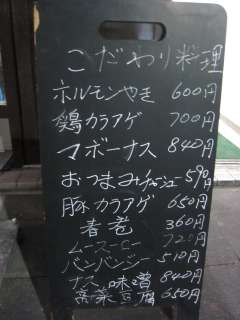 こだわり料理
ホルモンやき 600円
鶏カラアゲ 700円
マーボーナス 840円
おつまみチャーシュー 590円
豚カラアゲ 650円
春巻 360円
ムースーロー 720円
バンバンジー 510円
ナス味噌 840円
高菜豆腐 650円